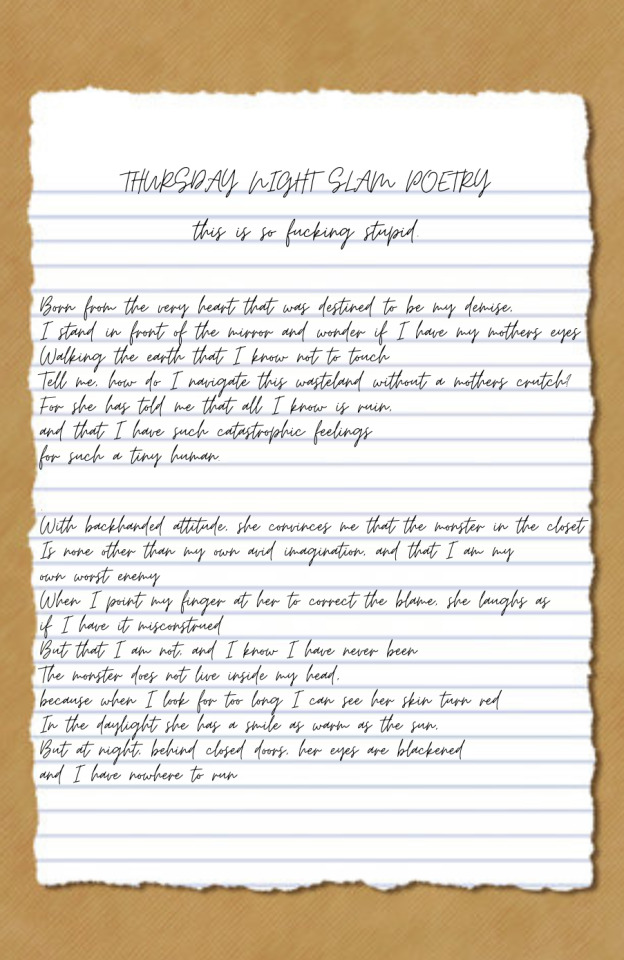 THURSDAY NIGHT SLAM POETRY
this is so fucking stupid.
Born from the very heart that was destined to be my demise.
I stand in front of the mirror and wonder if I have my mothers eyes
Walking the earth that I know not to touch
Tell me, how do I navigate this wasteland without a mothers crutch?
For she has told me that all I know is ruin,
and that I have such catastrophic feelings
for such a tiny human
With backhanded attitude, she convinces me that the monster in the closet
Is none other than my own avid imagination, and that I am my
own worst enemy
When I point my finger at her to correct the blame, she laughs as
if I have it misconstrued
But that I am not, and I know I have never been
The monster does not live inside my head,
because when I look for too long I can see her skin turn red
In the daylight she has a smile as warm as the sun,
But at night, behind closed doors, her eyes are blackened
and I have nowhere to run